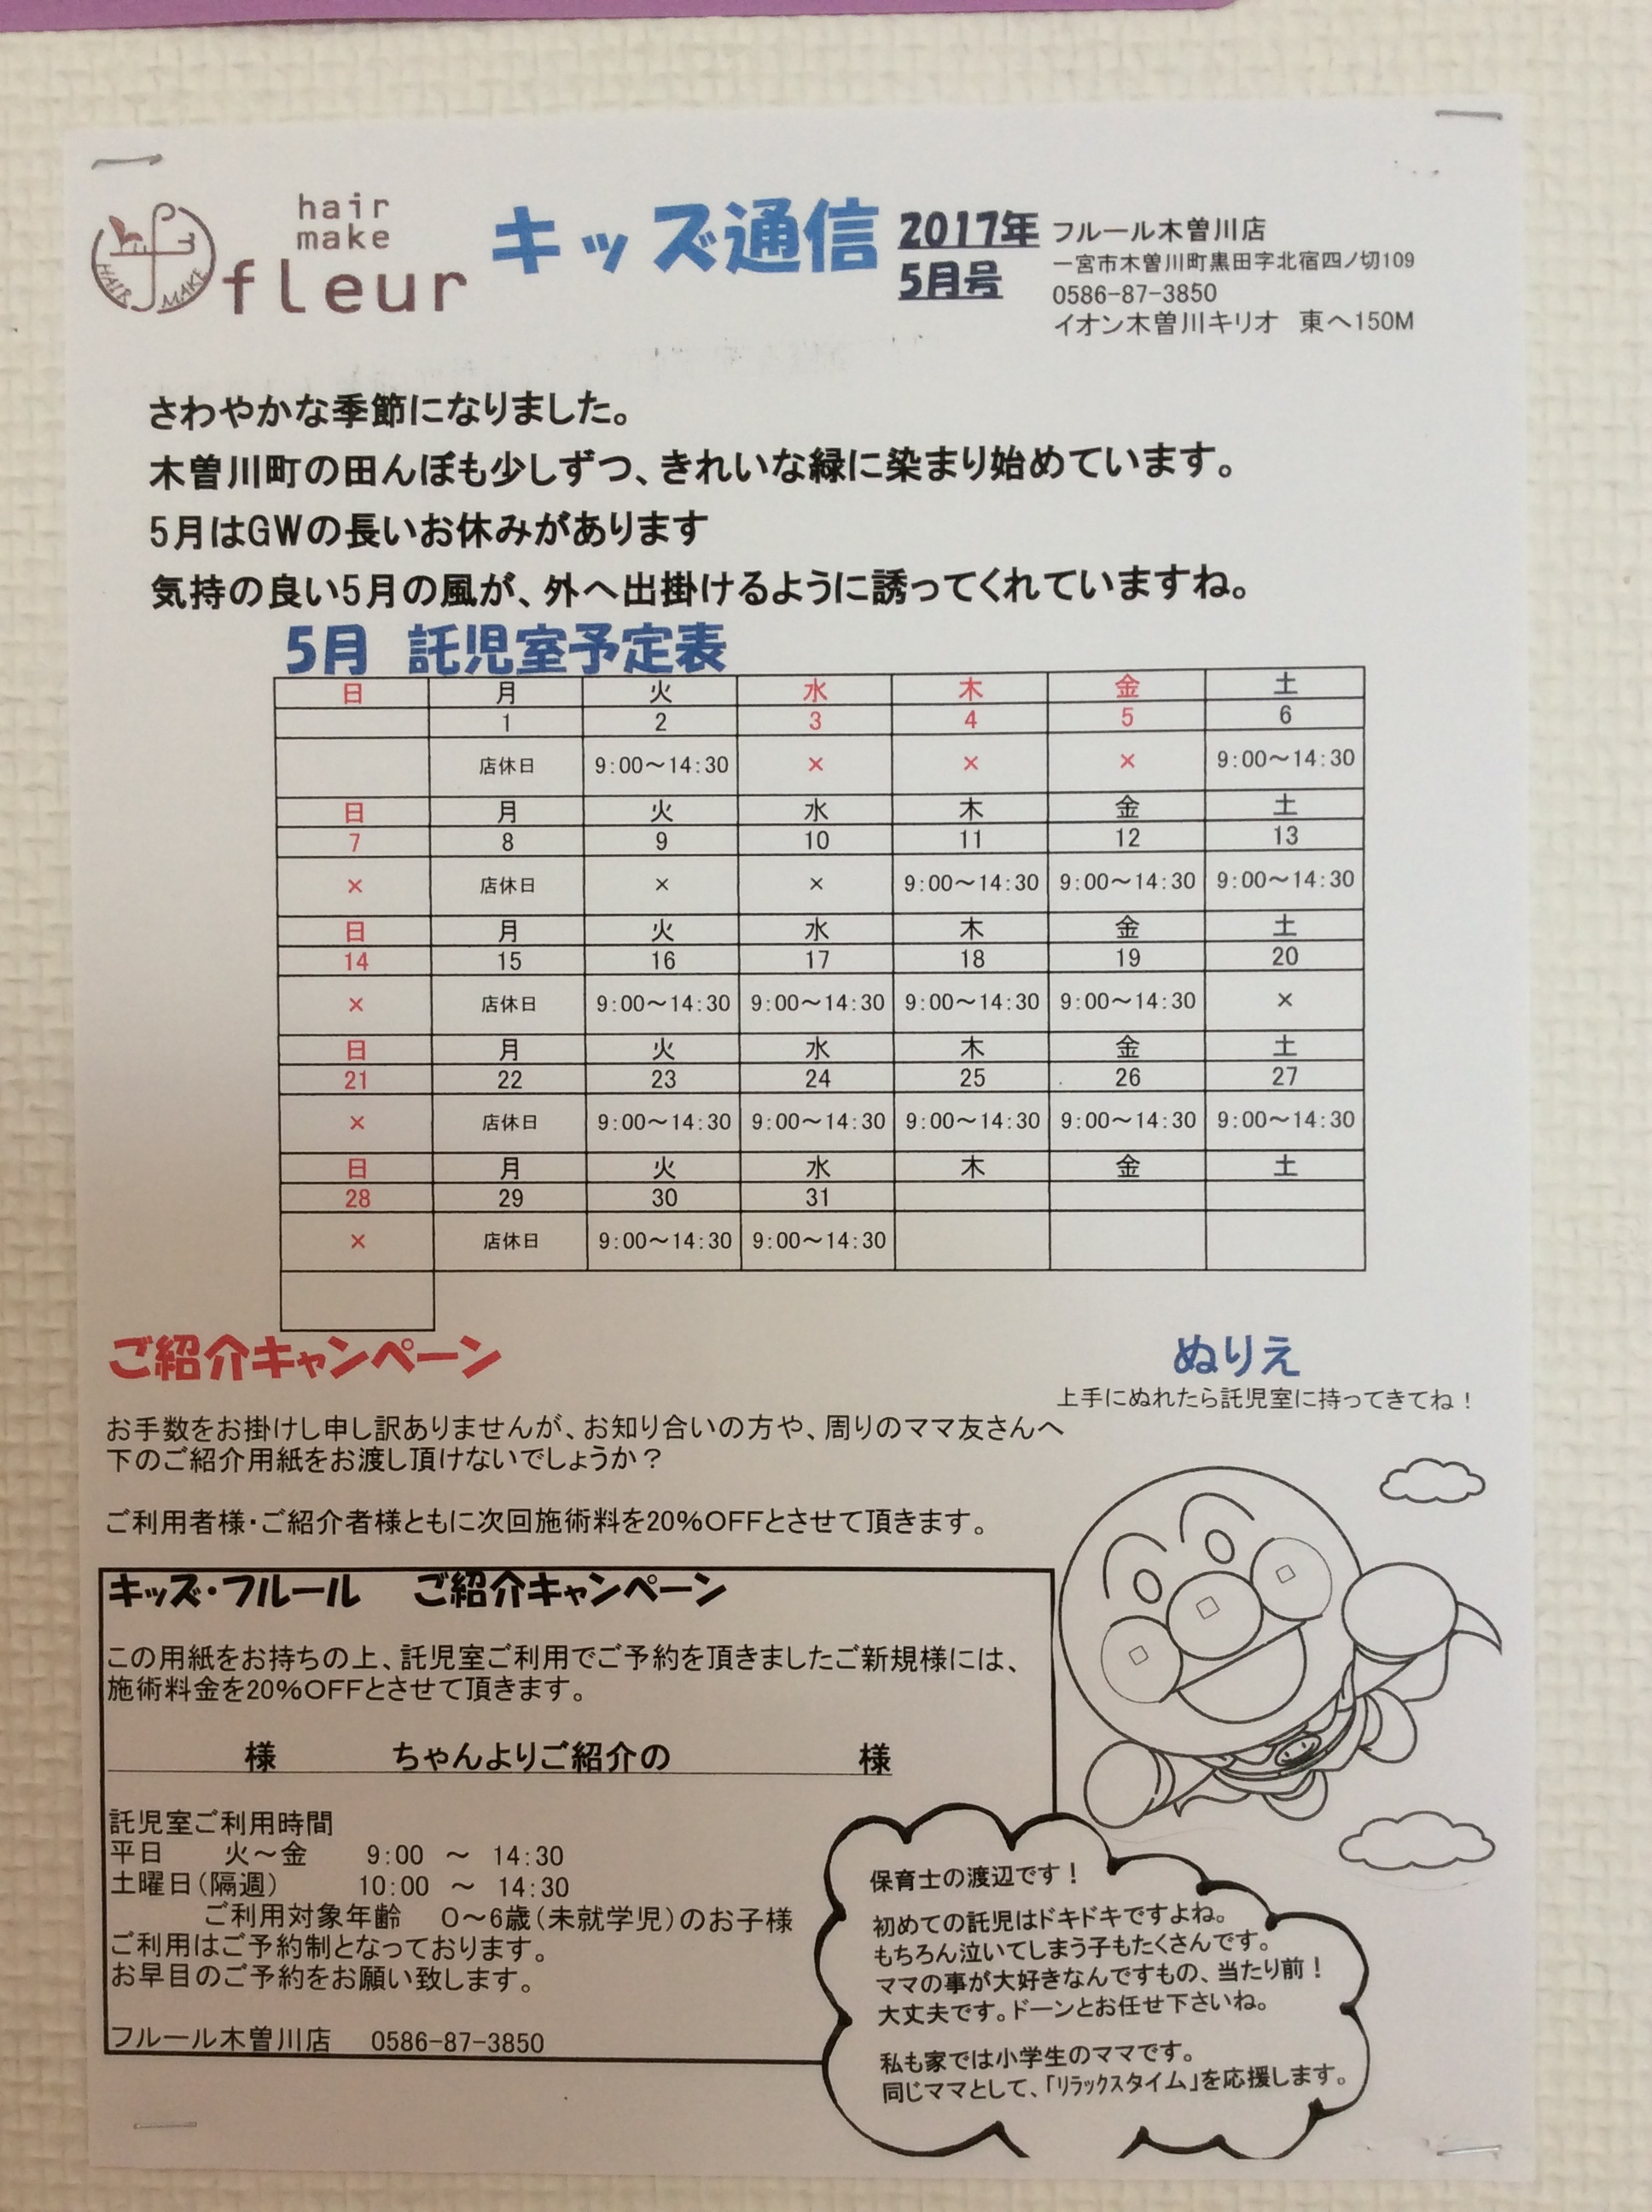 hair
make
fleur
HAIR MAKE
キッズ通信
2017年
5月号
フルール木曽川店
一宮市木曽川町黒田字北宿四ノ切109
0586-87-3850
イオン木曽川キリオ　東へ150M
さわやかな季節になりました。
木曽川町の田んぼも少しずつ、きれいな緑に染まり始めています。
5月はGWの長いお休みがあります
気持の良い5月の風が、外へ出掛けるように誘ってくれていますね。
5月　託児室予定表
日 月 火 水 木 金 土
1 2 3 4 5 6
店休日 9:00～14:30 × × × 9:00～14:30
日 月 火 水 木 金 土
7 8 9 10 11 12 13
× 店休日 × × 9:00～14:30 9:00～14:30 9:00～14:30
日 月 火 水 木 金 土
14 15 16 17 18 19 20
× 店休日 9:00～14:30 9:00～14:30 9:00～14:30 9:00～14:30 ×
日 月 火 水 木 金 土
21 22 23 24 25 26 27
× 店休日 9:00～14:30 9:00～14:30 9:00～14:30 9:00～14:30 9:00～14:30
日 月 火 水 木 金 土
28 29 30 31
× 店休日 9:00～14:30 9:00～14:30
ご紹介キャンペーン
お手数をお掛けし申し訳ありませんが、お知り合いの方や、周りのママ友さんへ
下のご紹介用紙をお渡し頂けないでしょうか？
ご利用者様・ご紹介者様ともに次回施術料を20％OFFとさせて頂きます。
ぬりえ
上手にぬれたら託児室に持ってきてね！
キッズ・フルール　ご紹介キャンペーン
この用紙をお持ちの上、託児室ご利用でご予約を頂きましたご新規様には、
施術料金を20％OFFとさせて頂きます。
様　ちゃんよりご紹介の　様
託児室ご利用時間
平日　火～金　9:00　～　14:30
土曜日（隔週）　10:00　～　14:30
ご利用対象年齢　0～6歳（未就学児）のお子様
ご利用はご予約制となっております。
お早目のご予約をお願い致します。
フルール木曽川店　0586-87-3850
保育士の渡辺です！
初めての託児はドキドキですよね。
もちろん泣いてしまう子もたくさんです。
ママの事が大好きなんですもの、当たり前！
大丈夫です。ドーンとお任せ下さいね。
私も家では小学生のママです。
同じママとして、「ﾘﾗｯｸｽタイム」を応援します。